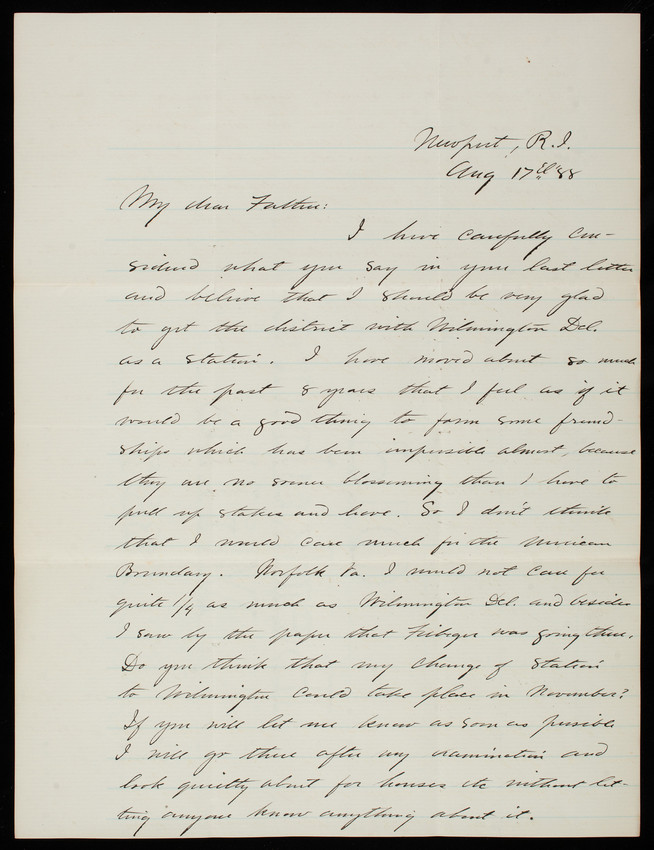 Newport, R.I.
Aug 17th '88
My dear Father:
I have carefully con-
sidered what you say in your last letter
and believe that I should be very glad
to get the district with Wilmington Del.
as a station. I have moved about so much
for the past 8 years that I feel as if it
would be a good thing to form some friend-
ships which has been impossible almost, because
they are no sooner blossoming than I have to
pull up stakes and leave. So I don't think
that I would care much for the Mexican
Boundary. Norfolk Va. I would not care for
quite 1/4 as much as Wilmington Del. and besides
I saw by the paper that Fiebeger was going there.
Do you think that my change of station
to Wilmington could take place in November?
If you will let me know as soon as possible
I will go there after my examination and
look quietly about for houses etc without let-
ting anyone know anything about it.